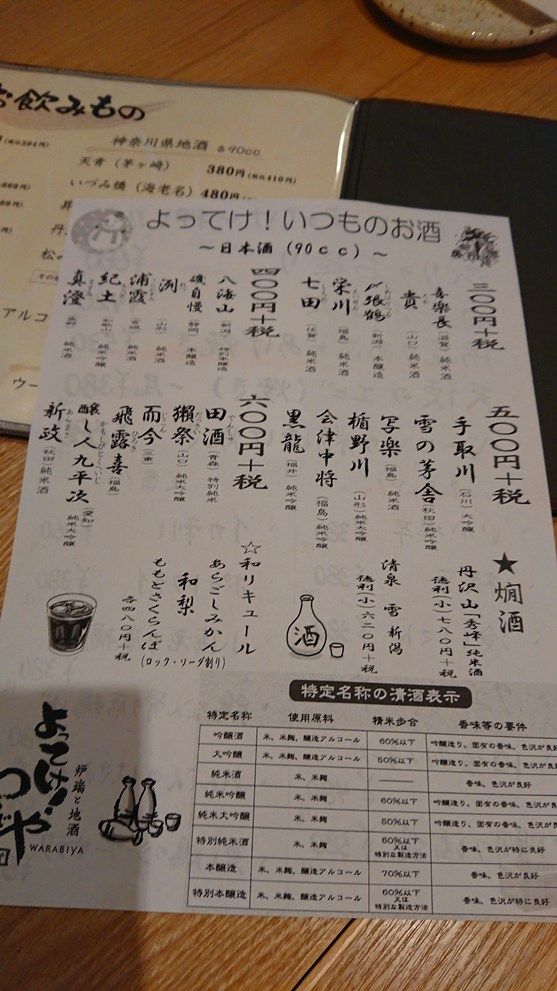 お飲みもの
神奈川県地酒 各90cc
天青（茅ヶ崎） 380円（税込410円）
いづみ橋（海老名） 480円
よってけ！いつものお酒
～日本酒（90cc）～
三〇〇円＋税
喜楽長（滋賀） 純米酒
貴（山口） 純米酒
〆張鶴（新潟） 本醸造
栄川（福島） 純米酒
七田（佐賀） 純米酒
四〇〇円＋税
八海山（新潟） 特別本醸造
磯自慢（静岡） 本醸造
洌（山形） 純米酒
浦霞（宮城） 純米酒
紀土（和歌山） 純米酒
真澄（長野） 純米酒
五〇〇円＋税
手取川（石川）大吟醸
雪の茅舎（秋田）純米吟醸
写楽（福島） 純米酒
楯野川（山形）純米大吟醸
会津中将（福島）純米吟醸
黒龍（福井）純米吟醸
六〇〇円＋税
田酒（青森） 特別純米
獺祭（山口）純米大吟醸
而今（三重）
飛露喜（福島）
醸し人九平次（愛知）純米大吟醸
新政（秋田）純米酒
★燗酒
丹沢山「秀峰」純米酒
徳利（小）七八〇円＋税
清泉 雪 新潟
徳利（小）六二〇円＋税
酒
☆和リキュール
あらごしみかん
和梨
ももとさくらんぼ
（ロック・ソーダ割り）
各四八〇円＋税
特定名称の清酒表示
特定名称 使用原料 精米歩合 香味等の要件
吟醸酒 米、米麹、醸造アルコール 60%以下 吟醸造り、固有の香味、色沢が良好
大吟醸 米、米麹、醸造アルコール 50%以下 吟醸造り、固有の香味、色沢が
純米酒 米、米麹 ― 香味、色沢が良好
純米吟醸 米、米麹 60%以下 吟醸造り、固有の香味、色沢が
純米大吟醸 米、米麹 50%以下 吟醸造り、固有の香味、色沢が
特別純米酒 米、米麹 60%以下又は特別な製造方法 香味、色沢が特に良好
本醸造 米、米麹、醸造アルコール 70%以下 香味、色沢が良好
特別本醸造 米、米麹、醸造アルコール 60%以下又は特別な製造方法 香味、色沢が特に良好
よってけ！
炉端と地酒
WARABIYA